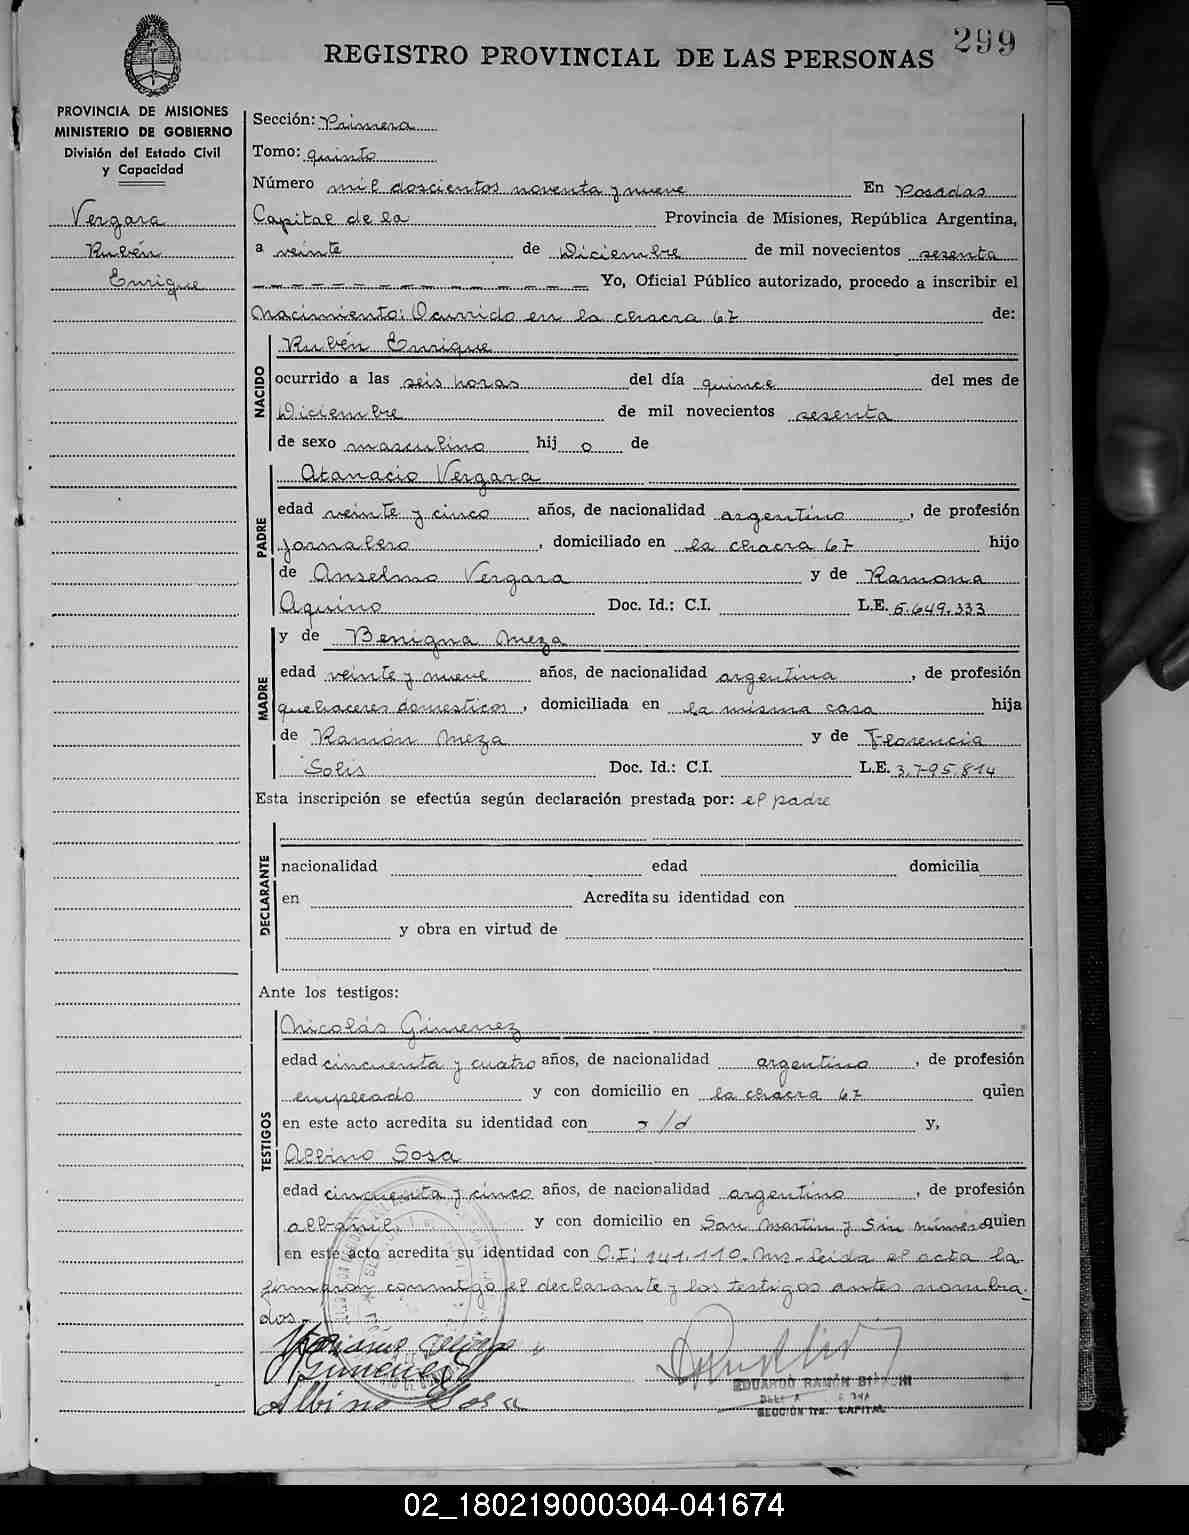 299
REGISTRO PROVINCIAL DE LAS PERSONAS
PROVINCIA DE MISIONES
MINISTERIO DE GOBIERNO
División del Estado Civil
y Capacidad
Vergara
Rubén
Enrique
Sección: Primera
Tomo: quinto
Número mil doscientos noventa y nueve En Posadas
Capital de la Provincia de Misiones, República Argentina,
a veinte de Diciembre de mil novecientos sesenta
Yo, Oficial Público autorizado, procedo a inscribir el
Nacimiento: Ocurrido en la chacra 67 de:
NACIDO
Rubén Enrique
ocurrido a las seis horas del día quince del mes de
Diciembre de mil novecientos sesenta
de sexo masculino hij o de
PADRE
Atanacio Vergara
edad veinte y cinco años, de nacionalidad argentino, de profesión
jornalero, domiciliado en la chacra 67 hijo
de Anselmo Vergara y de Ramona
Aquino Doc. Id.: C.I. L.E. 5.649.333
MADRE
y de Benigna Meza
edad veinte y nueve años, de nacionalidad argentina, de profesión
quehaceres domesticos, domiciliada en la misma casa hija
de Ramón Meza y de Florencia
Solis Doc. Id.: C.I. L.E. 3.795.814
Esta inscripción se efectúa según declaración prestada por: el padre
DECLARANTE
nacionalidad edad domicilia
en Acredita su identidad con
y obra en virtud de
Ante los testigos:
TESTIGOS
Nicolás Gimenez
edad cincuenta y cuatro años, de nacionalidad argentino, de profesión
empleado y con domicilio en la chacra 67 quien
en este acto acredita su identidad con y,
Albino Sosa
edad cincuenta y cinco años, de nacionalidad argentino, de profesión
albañil. y con domicilio en San Martin y Sin número quien
en este acto acredita su identidad con C.I: 141.110. Mns- leida el acta la
firmaron conmigo el declarante y los testigos antes nombra-
dos.-
Gimenez
Albino Sosa
EDUARDO RAMÓN
SECCIÓN 1ra. CAPITAL
02_180219000304-041674